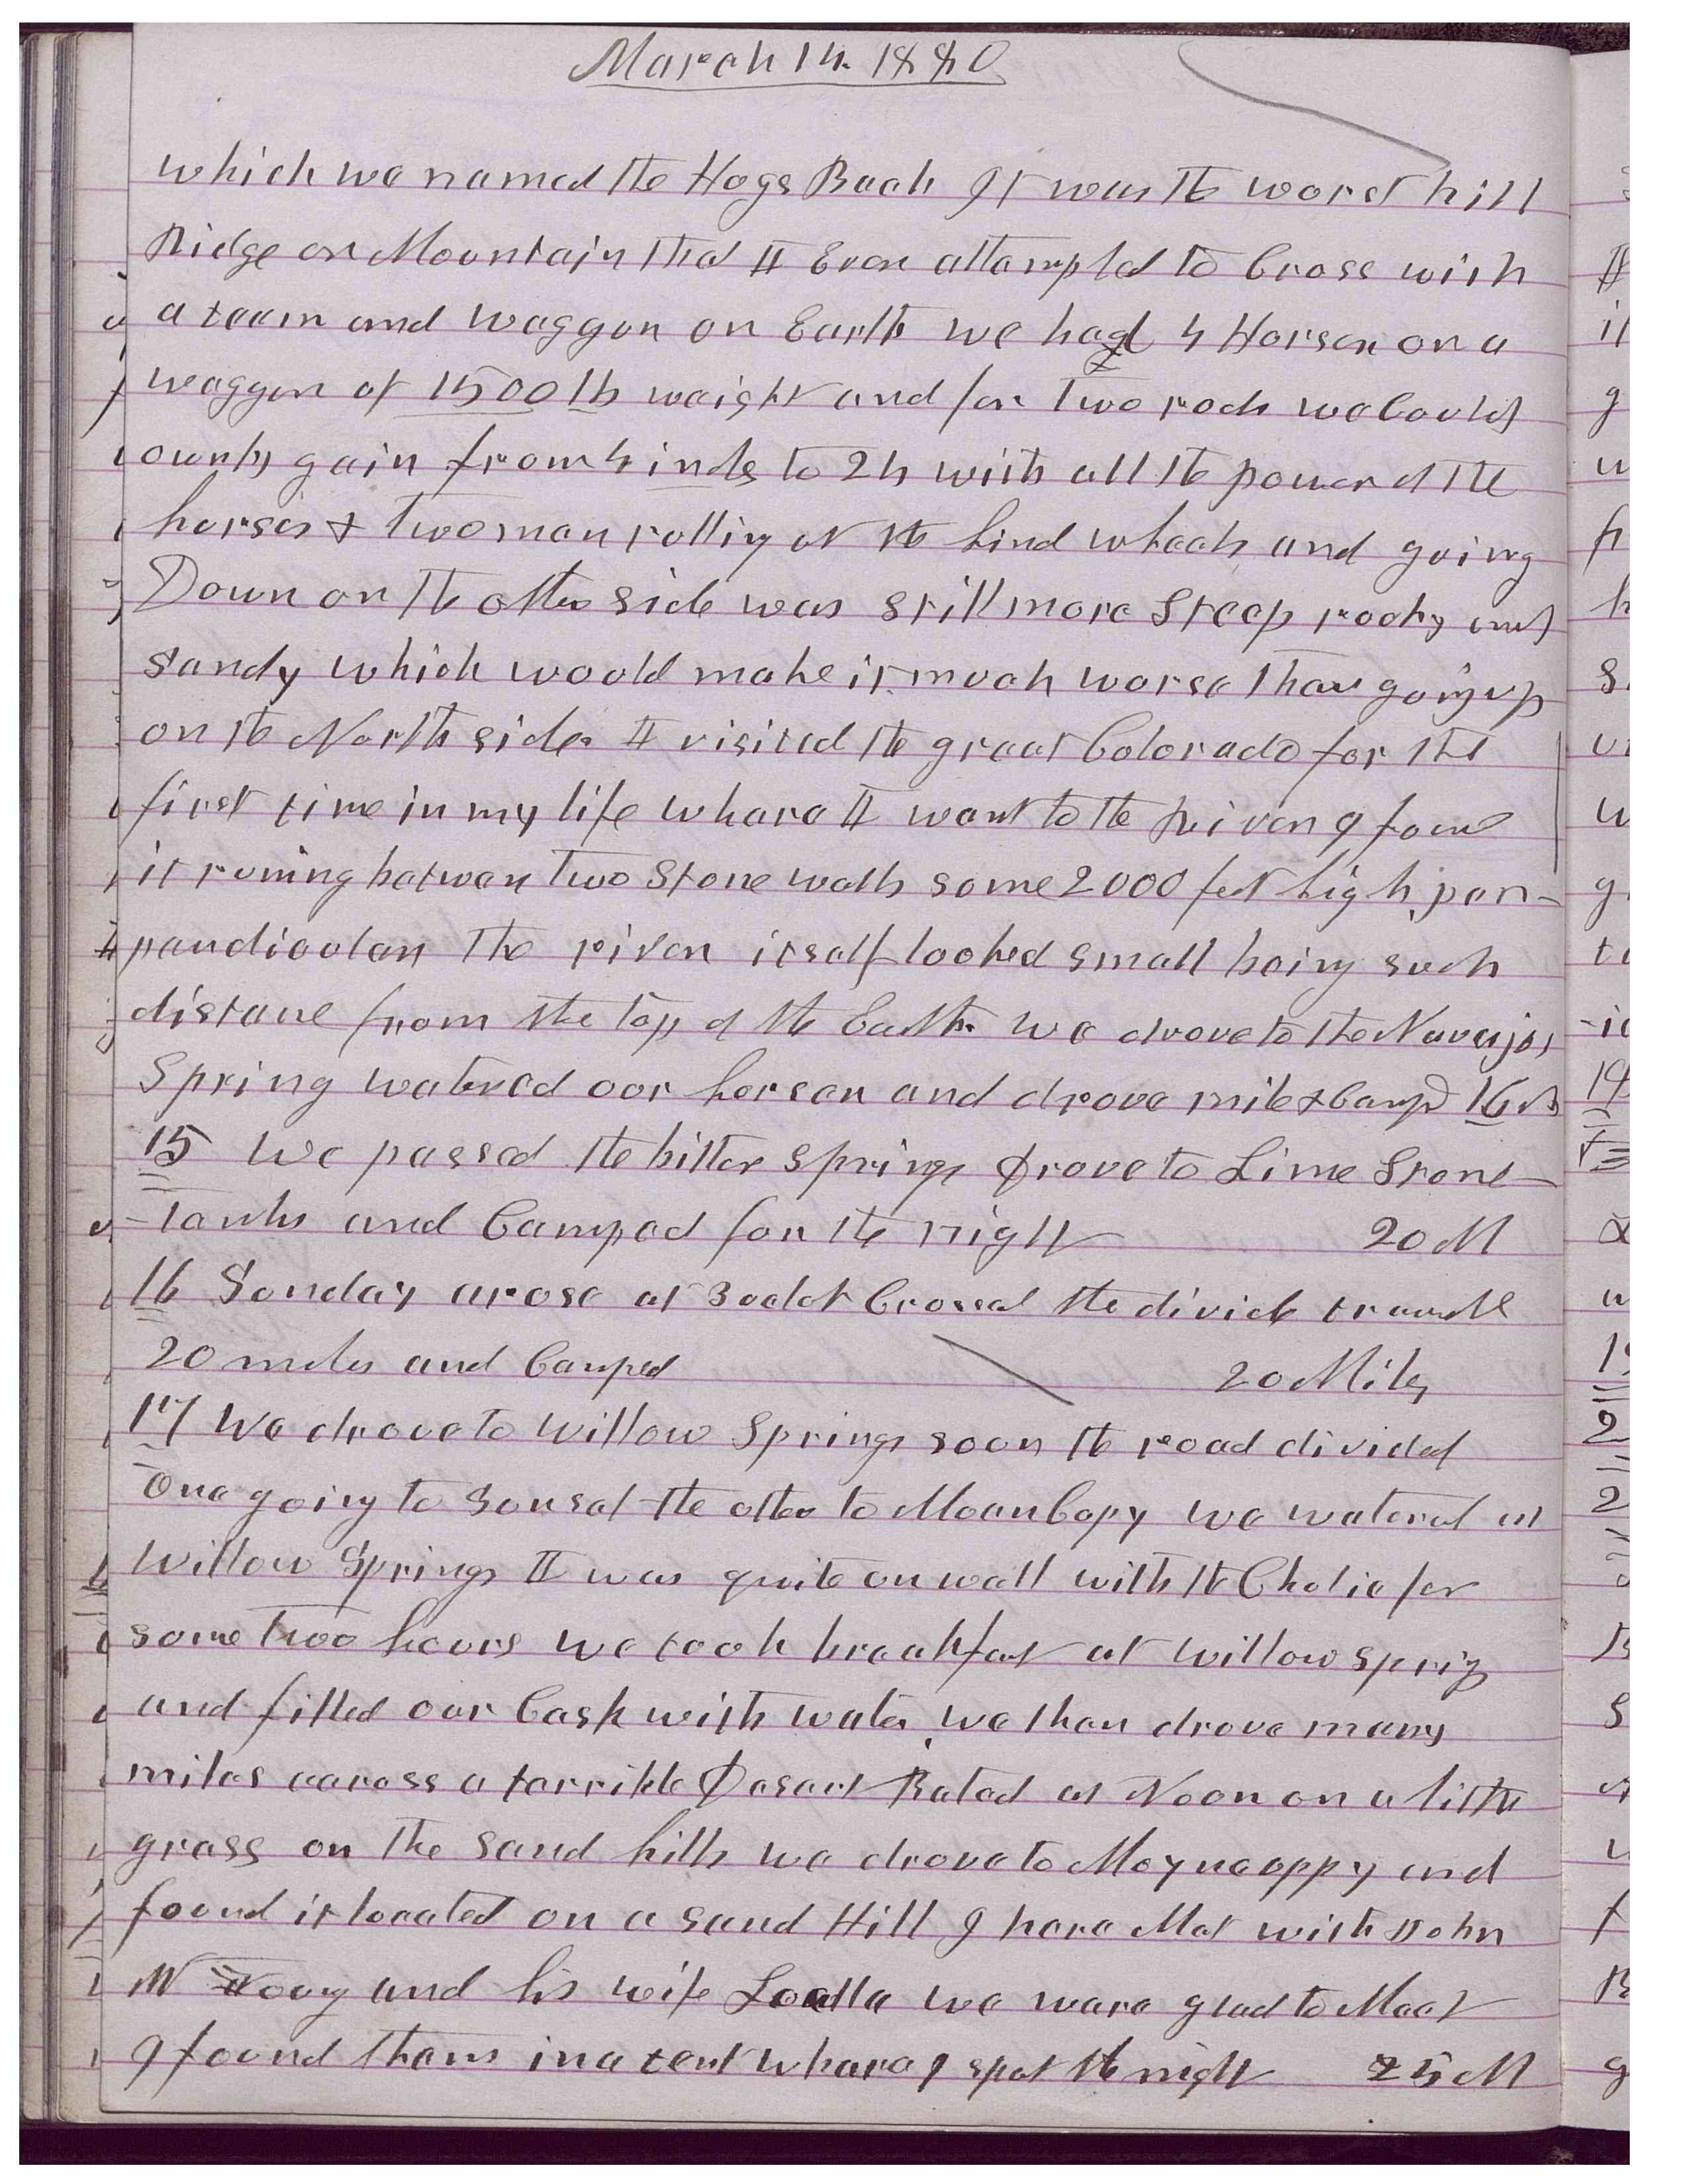 March 14. 1880
which we named the Hogs Back It was the worst hill
Ridge or Mountain that I Ever attempted to Cross with
a team and waggon on Earth we had 4 Horses on a
waggon of 1500 lb weight and for Two rods we Could
ownly gain from 4 inches to 24 with all the power of the
horses & Two men rolling at the hind wheels and going
Down on the other side was still more Steep rocky and
sandy which would make it much worse than going up
on the North side. I visited the great Colorado for the
first time in my life whare I went to the River I found
it runing betwen Two Stone walls some 2000 feet high per-
pendicular The river itself looked small being such
distance from the top of the Earth. we drove to the Navajos
Spring watered our horses and drove mile & Campd 16 M
15 We passed the bitter Springs drove to Lime Stone-
-Tanks and Camped for the night 20 M
16 Sunday arose at 3 oclok Crossed the divide travelled
20 miles and Camped 20 Miles
17 We drove to Willow Springs soon the road divided
One going to Sunset the other to Moancopy we watered at
Willow Springs I was quite unwell with the Cholic for
some Two hours we took breakfast at Willow Spring
and filled our Cask with water we then drove many
miles across a terrible Desert Bated at Noon on a little
grass on the Sand hills we drove to Moyncoppy and
found it located on a sand Hill I here Met with John
W Young and his wife Luella we ware glad to Meet
I found them in a tent whare I spent the night 25 M